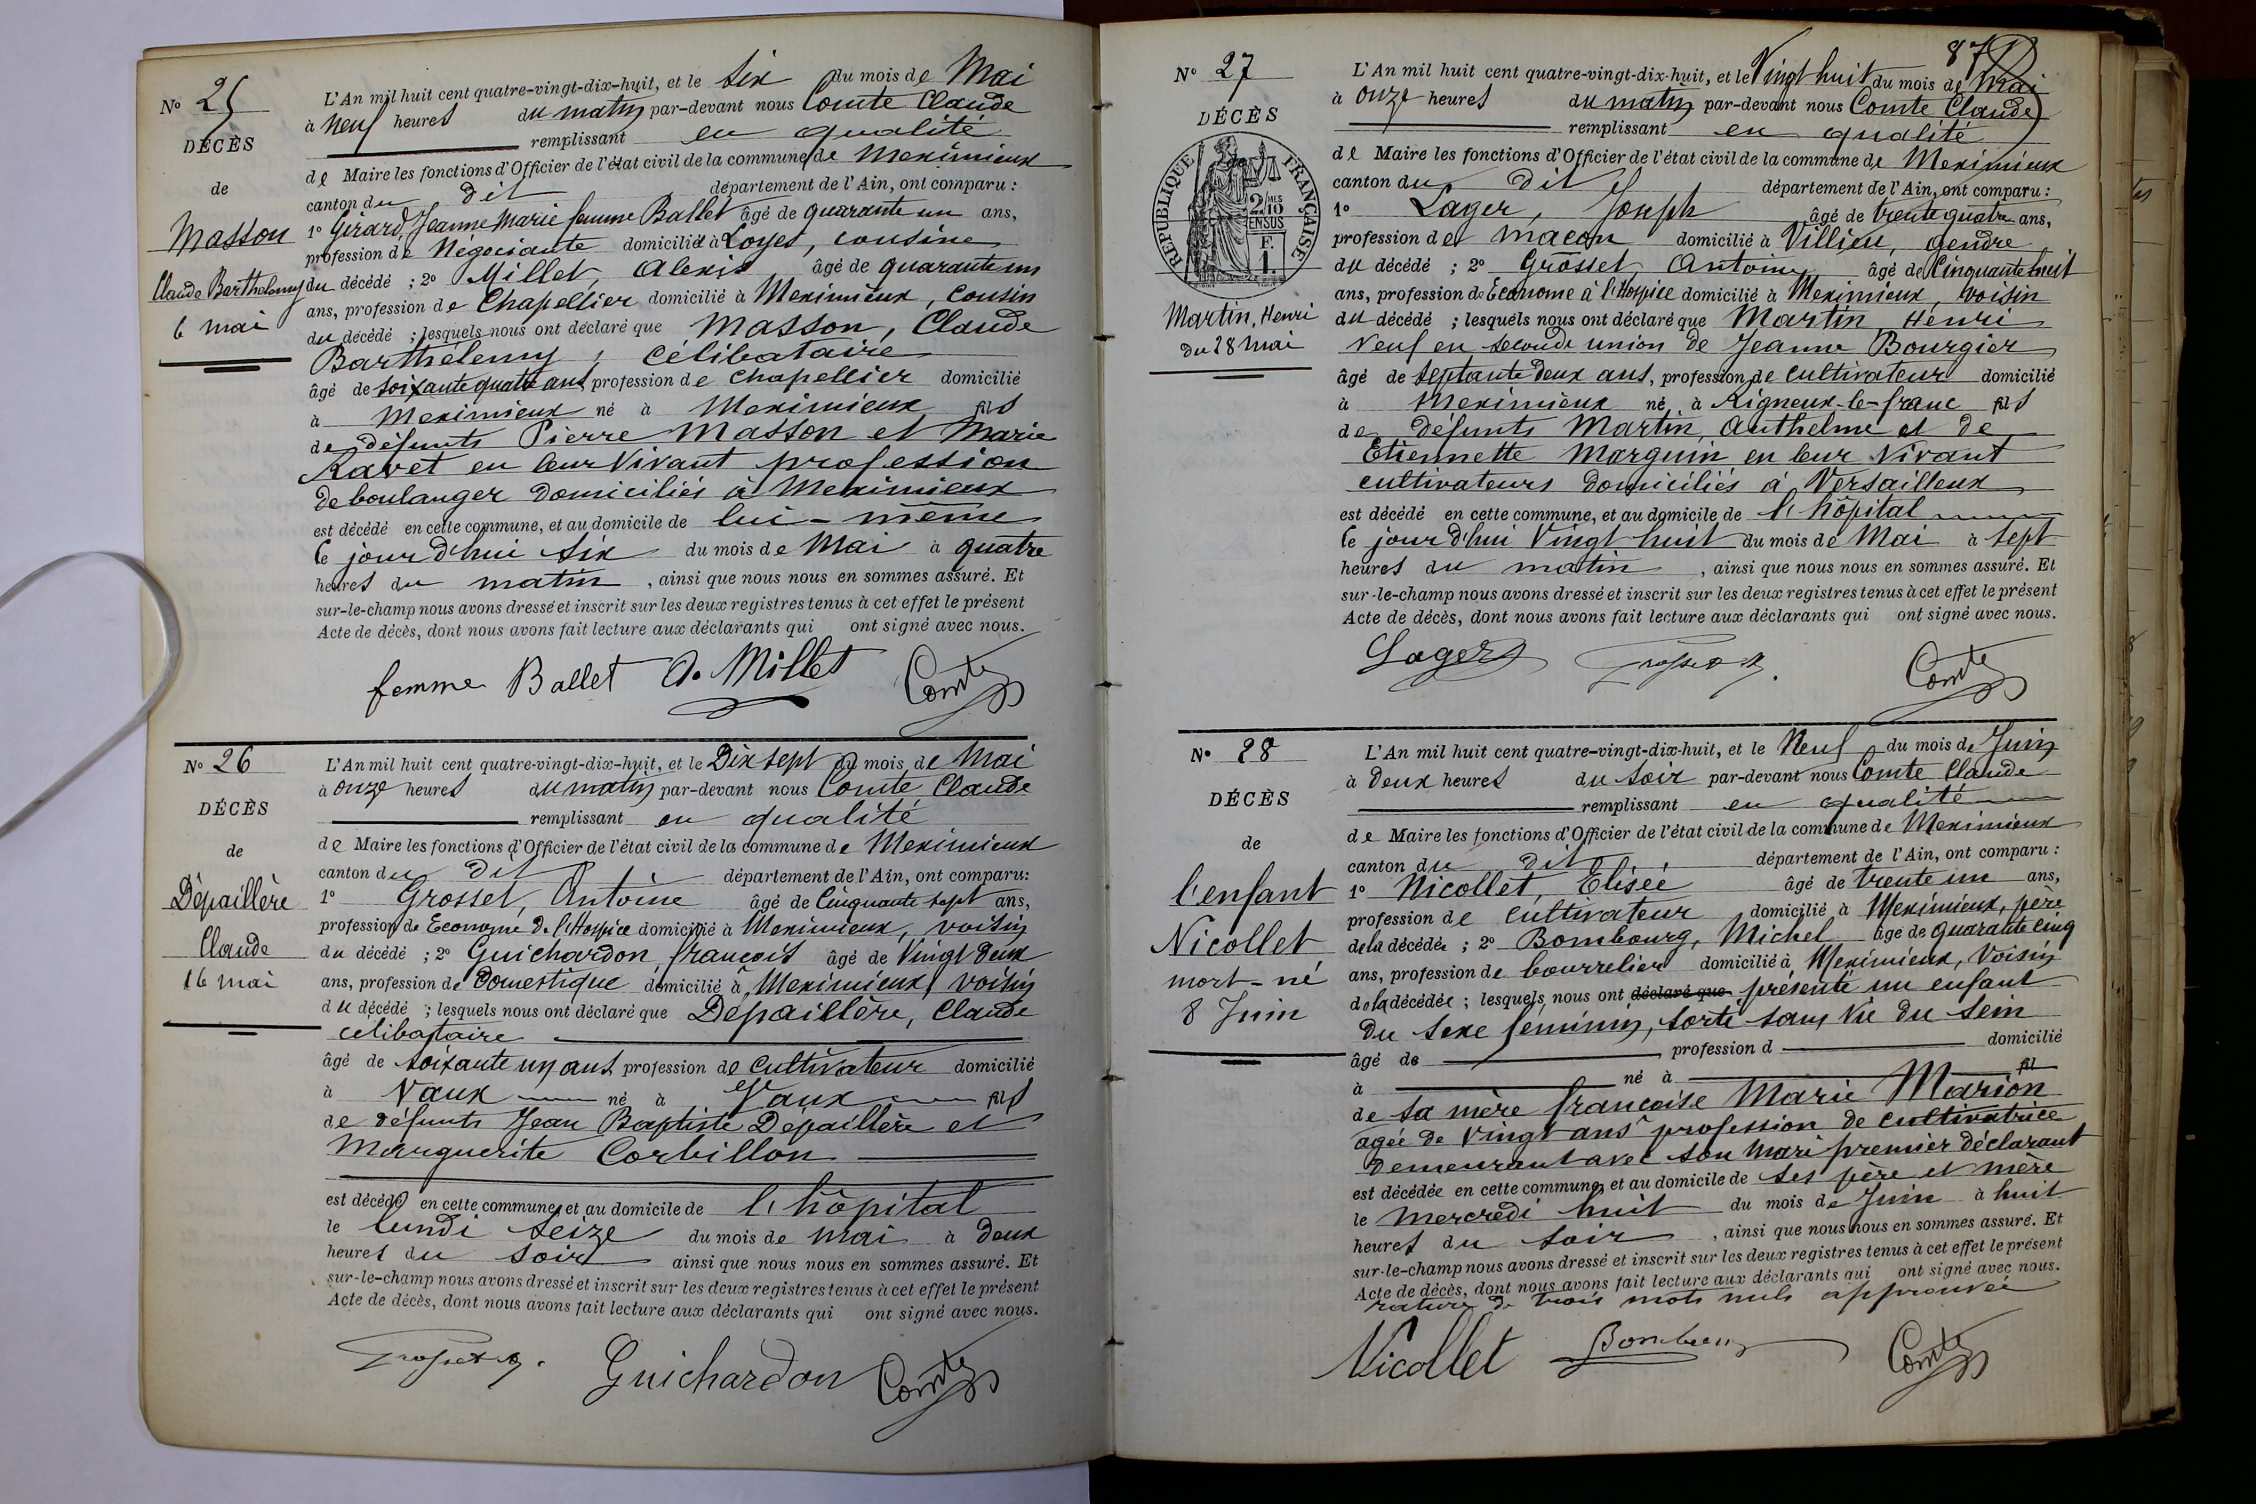 N° 25
DÉCÈS
de
Masson
Claude Barthélemy
6 mai
L'An mil huit cent quatre-vingt-dix-huit, et le six du mois de Mai
à neuf heures du matin par-devant nous Comte Claude
remplissant en qualité
de Maire les fonctions d'Officier de l'état civil de la commune de Meximieux
canton du dit département de l'Ain, ont comparu :
1° Girard, Jeanne Marie femme Ballet âgé de quarante un ans,
profession de Négociante domicilié à Loyes, cousine
du décédé ; 2° Millet, Alexis âgé de quarante un
ans, profession de Chapellier domicilié à Meximieux, Cousin
du décédé ; lesquels nous ont déclaré que Masson, Claude
Barthélemy, célibataire
âgé de soixante quatre ans, profession de chapellier domicilié
à Meximieux né à Meximieux fils
de défunts Pierre Masson et Marie
Ravet en leur vivant profession
de boulanger domiciliés à Meximieux
est décédé en cette commune, et au domicile de lui-même
le jourd'hui six du mois de Mai à quatre
heures du matin, ainsi que nous nous en sommes assuré. Et
sur-le-champ nous avons dressé et inscrit sur les deux registres tenus à cet effet le présent
Acte de décès, dont nous avons fait lecture aux déclarants qui ont signé avec nous.
femme Ballet A. Millet Comte
N° 26
DÉCÈS
de
Dépaillère
Claude
16 mai
L'An mil huit cent quatre-vingt-dix-huit, et le Dix sept du mois de Mai
à onze heures du matin par-devant nous Comte Claude
remplissant en qualité
de Maire les fonctions d'Officier de l'état civil de la commune de Meximieux
canton du dit département de l'Ain, ont comparu :
1° Grosset, Antoine âgé de Cinquante sept ans,
profession de Econome de l'Hospice domicilié à Meximieux, voisin
du décédé ; 2° Guichardon, françois âgé de Vingt deux
ans, profession de Domestique domicilié à Meximieux, voisin
du décédé ; lesquels nous ont déclaré que Dépaillère, Claude
célibataire
âgé de soixante un ans profession de cultivateur domicilié
à Vaux né à Vaux fils
de défunts Jean Baptiste Dépaillère et
Marguerite Corbillon
est décédé en cette commune, et au domicile de l'hôpital
le lundi seize du mois de mai à deux
heures du soir ainsi que nous nous en sommes assuré. Et
sur-le-champ nous avons dressé et inscrit sur les deux registres tenus à cet effet le présent
Acte de décès, dont nous avons fait lecture aux déclarants qui ont signé avec nous.
Guichardon Comte
87
N° 27
DÉCÈS
de
RÉPUBLIQUE FRANÇAISE
2/10 EN SUS
F. 1.
Martin, Henri
du 28 mai
L'An mil huit cent quatre-vingt-dix-huit, et le Vingt huit du mois de Mai
à onze heures du matin par-devant nous Comte Claude
remplissant en qualité
de Maire les fonctions d'Officier de l'état civil de la commune de Meximieux
canton du dit département de l'Ain, ont comparu :
1° Lager, Joseph âgé de trente quatre ans,
profession de macon domicilié à Villieu, gendre
du décédé ; 2° Grosset, Antoine âgé de Cinquante huit
ans, profession de Econome à l'Hospice domicilié à Meximieux, voisin
du décédé ; lesquels nous ont déclaré que Martin Henri
Veuf en seconde union de Jeanne Bourgier
âgé de septante deux ans, profession de cultivateur domicilié
à Meximieux né à Rigneux-le-franc fils
de défunts Martin, Anthelme et de
Etiennette Marguin en leur vivant
cultivateurs domiciliés à Versailleux
est décédé en cette commune, et au domicile de l'hôpital
le jourd'hui Vingt huit du mois de Mai à sept
heures du matin, ainsi que nous nous en sommes assuré. Et
sur-le-champ nous avons dressé et inscrit sur les deux registres tenus à cet effet le présent
Acte de décès, dont nous avons fait lecture aux déclarants qui ont signé avec nous.
Lager Comte
N° 28
DÉCÈS
de
l'enfant
Nicollet
mort-né
8 Juin
L'An mil huit cent quatre-vingt-dix-huit, et le Neuf du mois de Juin
à deux heures du soir par-devant nous Comte Claude
remplissant en qualité
de Maire les fonctions d'Officier de l'état civil de la commune de Meximieux
canton du dit département de l'Ain, ont comparu :
1° Nicollet, Elisée âgé de trente un ans,
profession de cultivateur domicilié à Meximieux, père
de la décédée ; 2° Bombourg, Michel âgé de quarante cinq
ans, profession de bourrelier domicilié à Meximieux, Voisin
de la décédée ; lesquels nous ont déclaré que présenté un enfant
du sexe féminin, sorti sans vie du sein
âgé de profession d domicilié
à né à fil
de sa mère françoise Marie Marion
agée de vingt ans profession de cultivatrice
demeurant avec son mari premier déclarant
est décédée en cette commune, et au domicile de ses père et mère
le mercredi huit du mois de Juin à huit
heures du soir, ainsi que nous nous en sommes assuré. Et
sur-le-champ nous avons dressé et inscrit sur les deux registres tenus à cet effet le présent
Acte de décès, dont nous avons fait lecture aux déclarants qui ont signé avec nous.
rature de trois mots nuls approuvée
Nicollet Comte